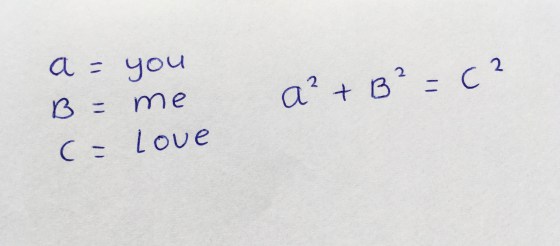 a = you
B = me
C = Love
a² + B² = C²